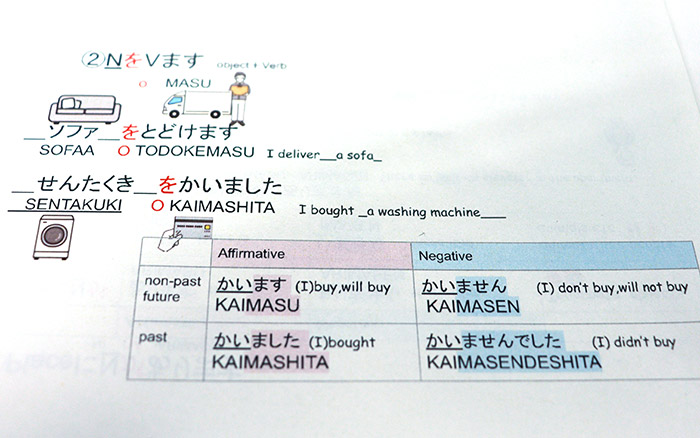 ②NをVます object + Verb
O MASU
__ソファ__をとどけます
SOFAA O TODOKEMASU I deliver__a sofa_
__せんたくき__をかいました
SENTAKUKI O KAIMASHITA I bought _a washing machine___
Affirmative Negative
non-past future かいます (I)buy,will buy かいません (I) don't buy,will not buy
KAIMASU KAIMASEN
past かいました (I)bought かいませんでした (I) didn't buy
KAIMASHITA KAIMASENDESHITA